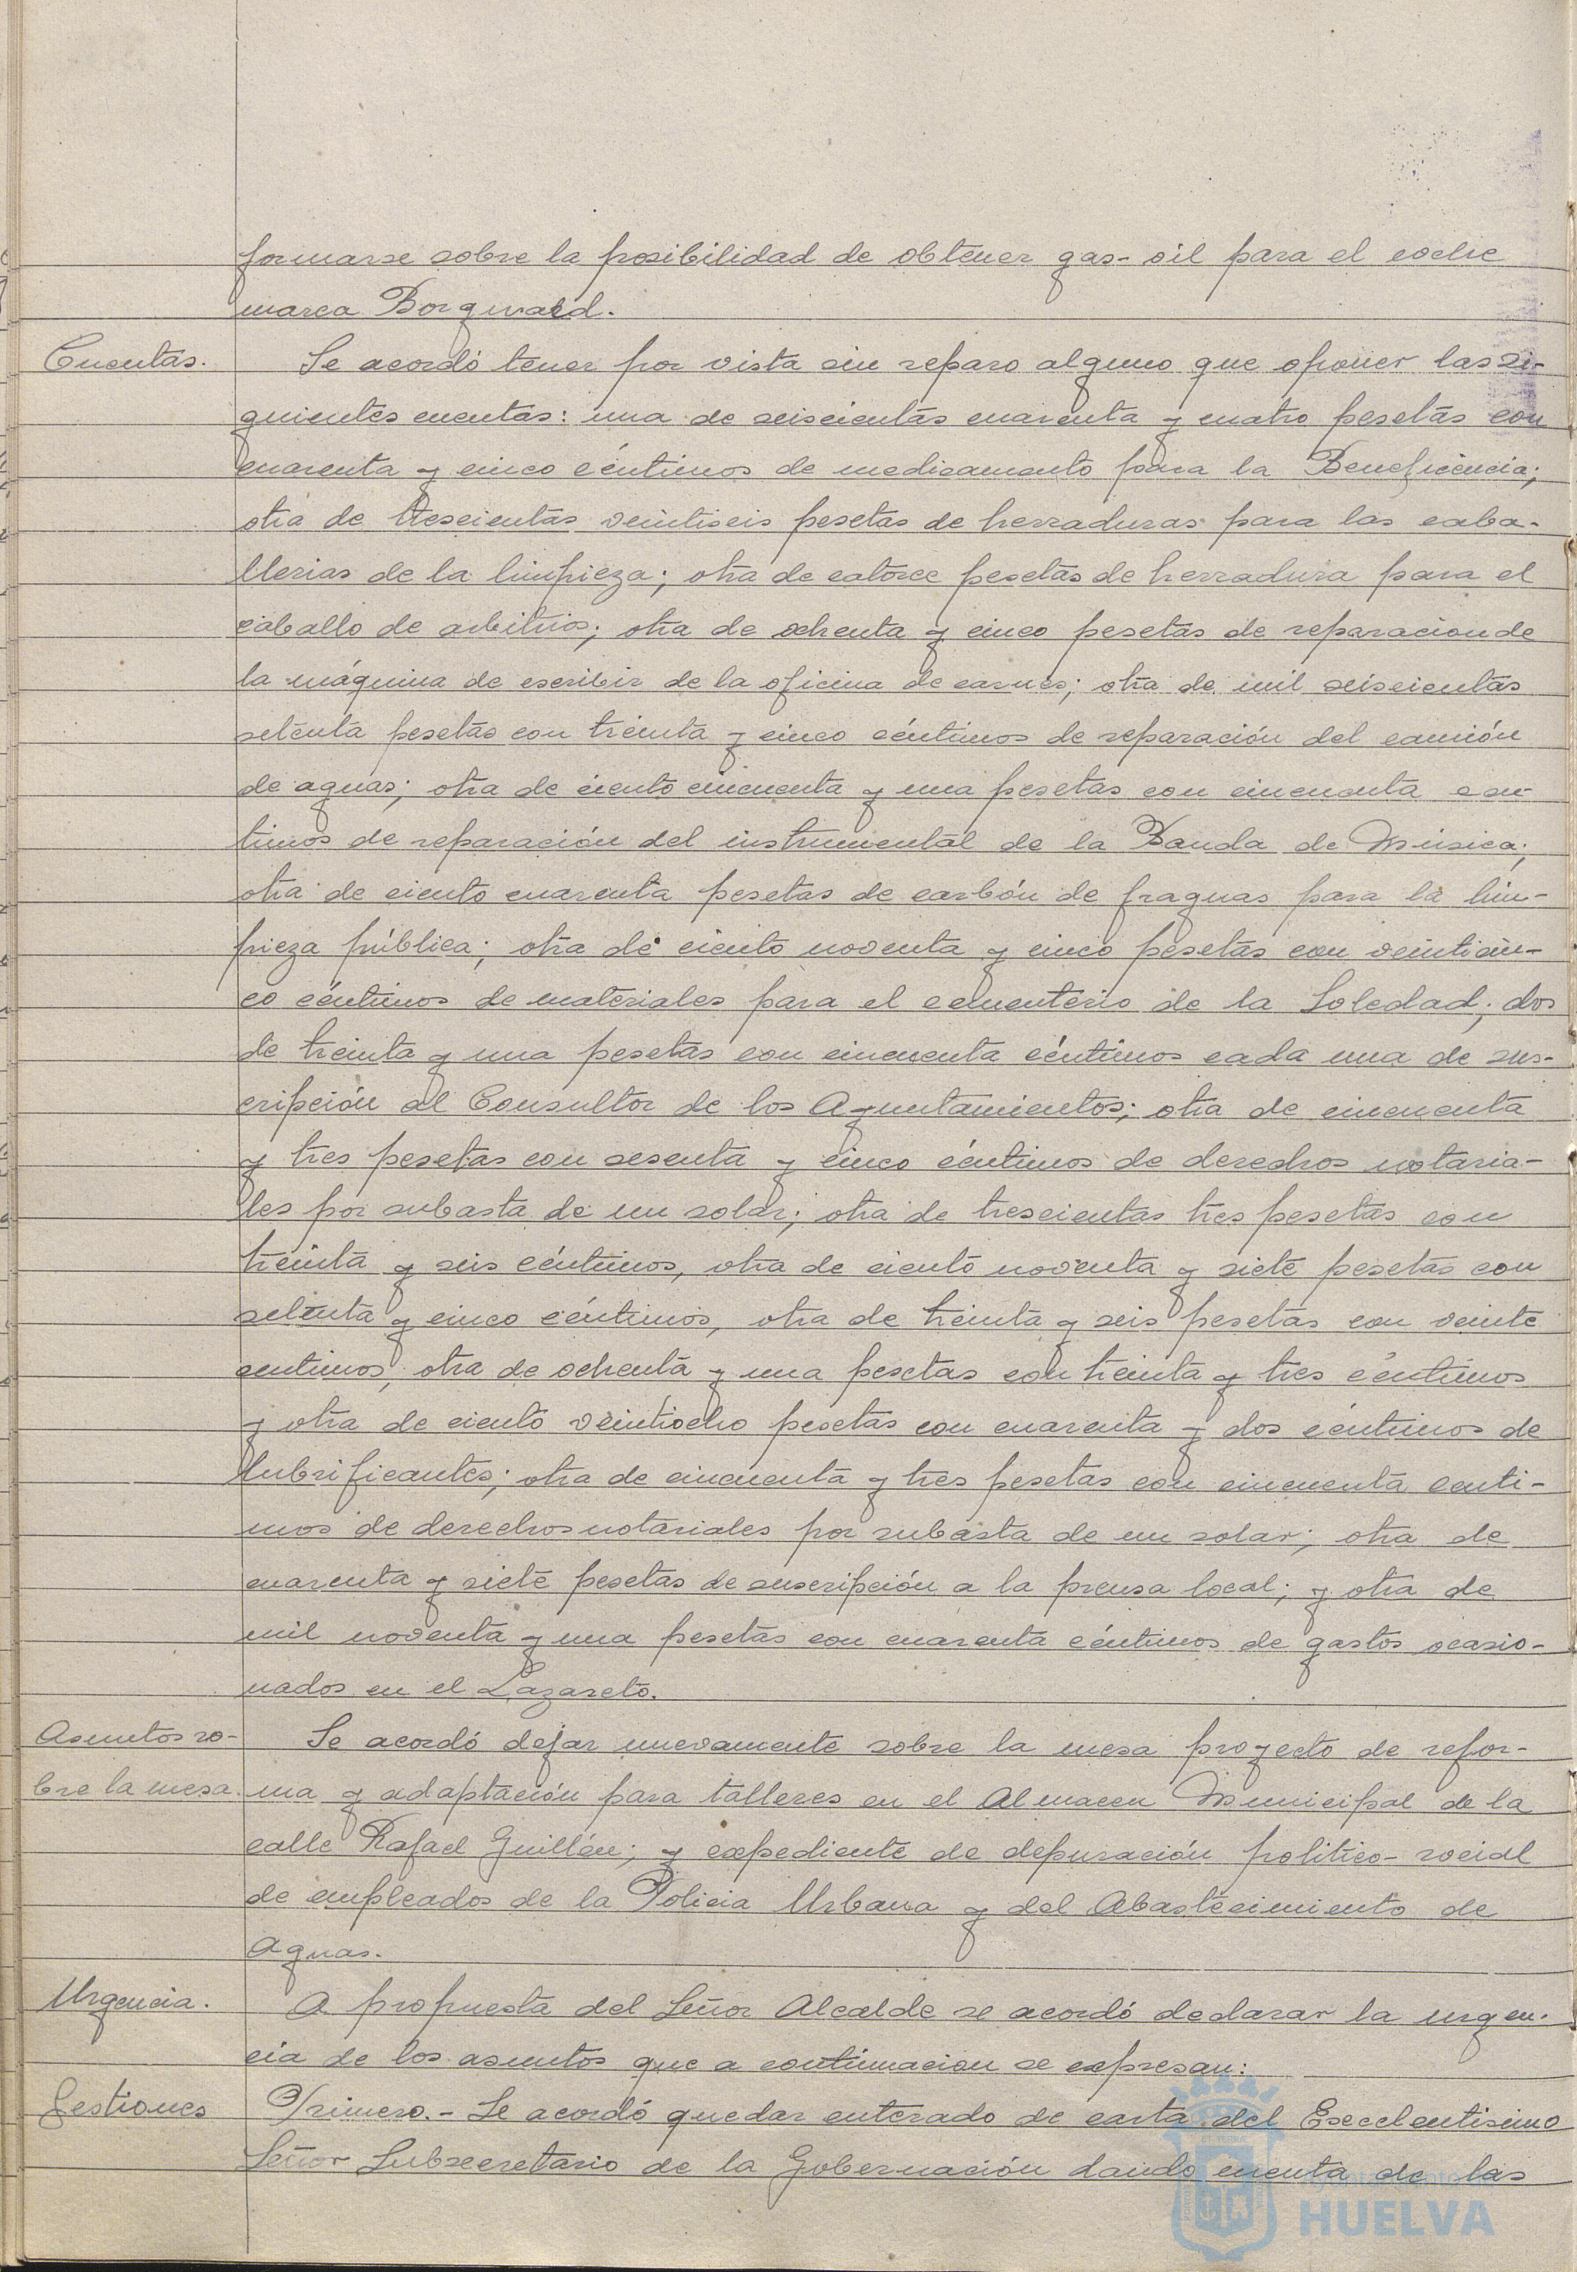 formarse sobre la posibilidad de obtener gas-oil para el coche
marca Borgward.
Cuentas.
Se acordó tener por vista sin reparo alguno que oponer las si-
guientes cuentas: una de seiscientas cuarenta y cuatro pesetas con
cuarenta y cinco céntimos de medicamento para la Beneficencia;
otra de trescientas veintiseis pesetas de herraduras para las caba-
llerias de la limpieza; otra de catorce pesetas de herradura para el
caballo de arbitrios; otra de ochenta y cinco pesetas de reparacion de
la máquina de escribir de la oficina de carnes; otra de mil seiscientas
setenta pesetas con treinta y cinco céntimos de reparación del camión
de aguas; otra de ciento cincuenta y una pesetas con cincuenta cen-
timos de reparación del instrumental de la Banda de Música;
otra de ciento cuarenta pesetas de carbón de fraguas para la lim-
pieza pública; otra de ciento noventa y cinco pesetas con veinticin-
co céntimos de materiales para el cementerio de la Soledad; dos
de treinta y una pesetas con cincuenta céntimos cada una de sus-
cripción al Consultor de los Ayuntamientos; otra de cincuenta
y tres pesetas con sesenta y cinco céntimos de derechos notaria-
les por subasta de un solar; otra de trescientas tres pesetas con
treinta y seis céntimos, otra de ciento noventa y siete pesetas con
setenta y cinco céntimos, otra de treinta y seis pesetas con veinte
centimos, otra de ochenta y una pesetas con treinta y tres céntimos
y otra de ciento veintiocho pesetas con cuarenta y dos céntimos de
lubrificantes; otra de cincuenta y tres pesetas con cincuenta centi-
mos de derechos notariales por subasta de un solar; otra de
cuarenta y siete pesetas de suscripción a la prensa local; y otra de
mil noventa y una pesetas con cuarenta céntimos de gastos ocasio-
nados en el Lazareto.
Asuntos so-
bre la mesa.
Se acordó dejar nuevamente sobre la mesa proyecto de refor-
ma y adaptación para talleres en el Almacen Municipal de la
calle Rafael Guillén; y expediente de depuración politico-social
de empleados de la Policia Urbana y del Abastecimiento de
Aguas.
Urgencia.
A propuesta del Señor Alcalde se acordó declarar la urgen-
cia de los asuntos que a continuacion se expresan:
Gestiones
Primero.- Se acordó quedar enterado de carta del Excelentisimo
Señor Subsecretario de la Gobernación dando cuenta de las
Ayuntamiento
HUELVA